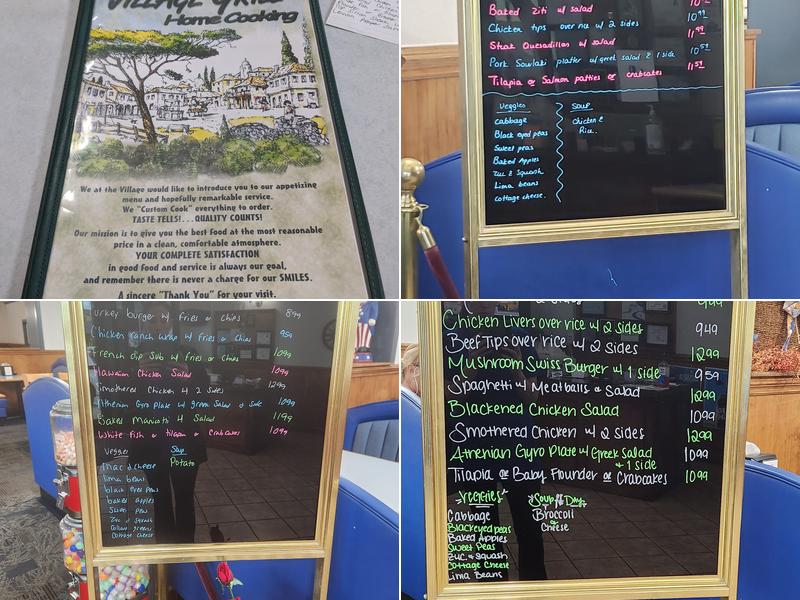 VILLAGE GRILL
Home Cooking
We at the Village would like to introduce you to our appetizing
menu and hopefully remarkable service.
We "Custom Cook" everything to order.
TASTE TELLS!...QUALITY COUNTS!
Our mission is to give you the best food at the most reasonable
price in a clean, comfortable atmosphere.
YOUR COMPLETE SATISFACTION
in good food and service is always our goal,
and remember there is never a charge for our SMILES.
A sincere "Thank You" for your visit.
Baked Ziti w/ salad
Chicken tips over rice w/ 2 sides 10.99
Steak Quesadillas w/ salad 11.99
Pork Souvlaki platter w/ greek salad & 1 side 10.59
Tilapia or Salmon patties or crabcakes 11.59
Veggies
Cabbage
Black eyed peas
Sweet peas
Baked Apples
Zuc & Squash
Lima beans
Cottage cheese
Soup
Chicken &
Rice
urkey burger w/ fries or chips 899
Chicken ranch wrap w/ fries or chips 959
French dip Sub w/ fries or chips 1099
Hawaiian Chicken Salad 1099
Smothered Chicken w/ 2 sides 1299
Athenian Gyro Plate w/ greek Salad & side 1099
Baked Manicotti & Salad 1199
White fish or tilapia or Crabcakes 1099
Veggies
mac & cheese
lima beans
black eyes peas
baked apples
Sweet peas
Zuc & Squash
Collard greens
Cottage cheese
Soup
Potato
w/ 2 sides 999
Chicken Livers over rice w/ 2 sides 949
Beef Tips over rice w/ 2 sides 1299
Mushroom Swiss Burger w/ 1 side 959
Spaghetti w/ Meatballs & Salad 1299
Blackened Chicken Salad 1099
Smothered Chicken w/ 2 sides 1299
Athenian Gyro Plate w/ Greek Salad 1099
+ 1 side
Tilapia or Baby Flounder or Crabcakes 1099
Veggies
Cabbage
Blackeyed peas
Baked Apples
Sweet Peas
Zuc. & Squash
Cottage Cheese
Lima Beans
Soup of Day
Broccoli
&
Cheese